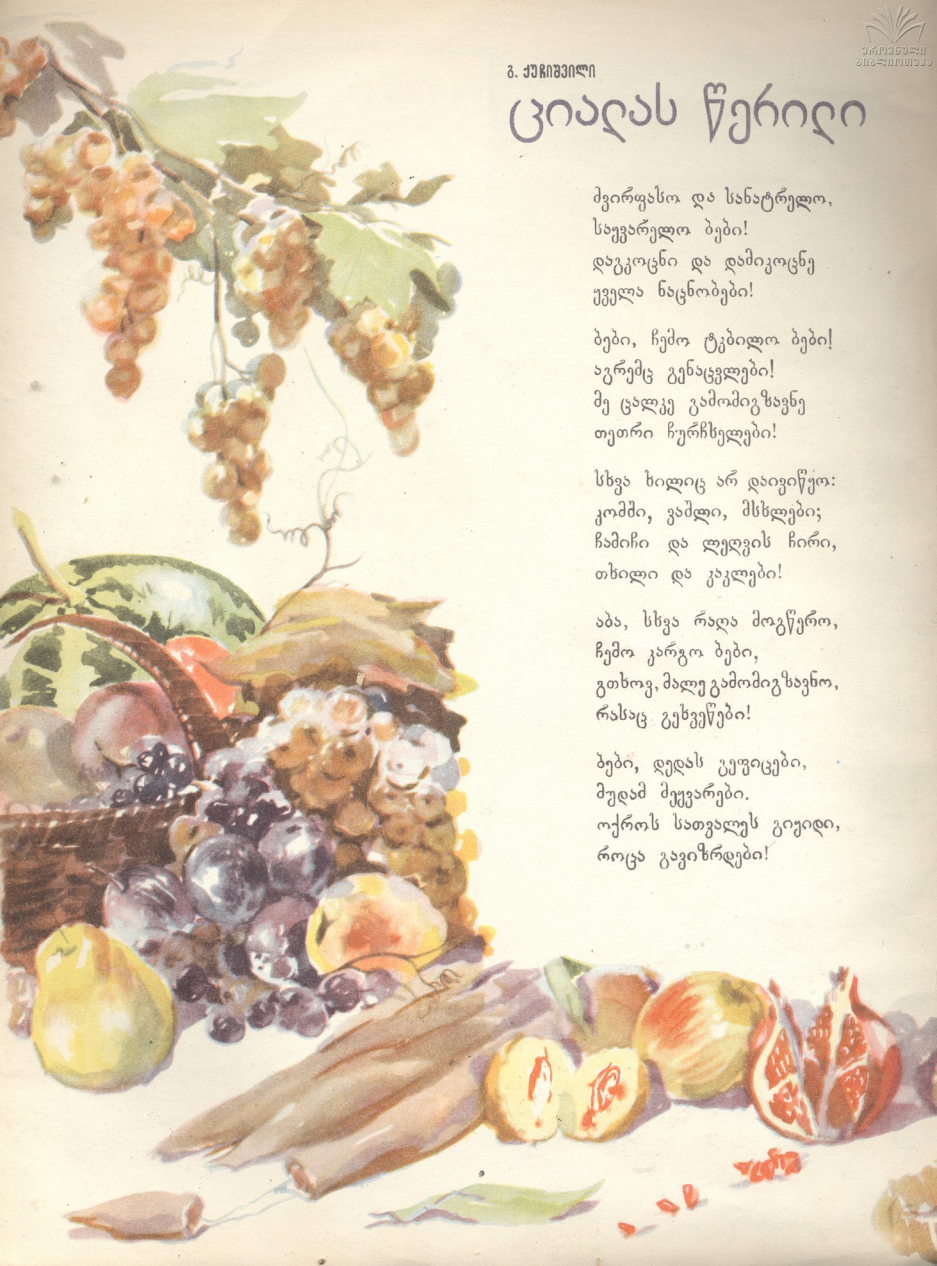 ეროვნული
ბიბლიოთეკა
გ. ქუჩიშვილი
ციალას წერილი
ძვირფასო და სანატრელო,
საყვარელო ბები!
დაგკოცნი და დამიკოცნე
ყველა ნაცნობები!
ბები, ჩემო ტკბილო ბები!
აგრემც გენაცვლები!
მე ცალკე გამომიგზავნე
თეთრი ჩურჩხელები!
სხვა ხილიც არ დაივიწყო:
კომში, ვაშლი, მსხლები;
ჩამიჩი და ლეღვის ჩირი,
თხილი და კაკლები!
აბა, სხვა რაღა მოგწერო,
ჩემო კარგო ბები,
გთხოვ, მალე გამომიგზავნო,
რასაც გეხვეწები!
ბები, დედას გეფიცები,
მუდამ მეყვარები.
ოქროს სათვალეს გიყიდი,
როცა გავიზრდები!